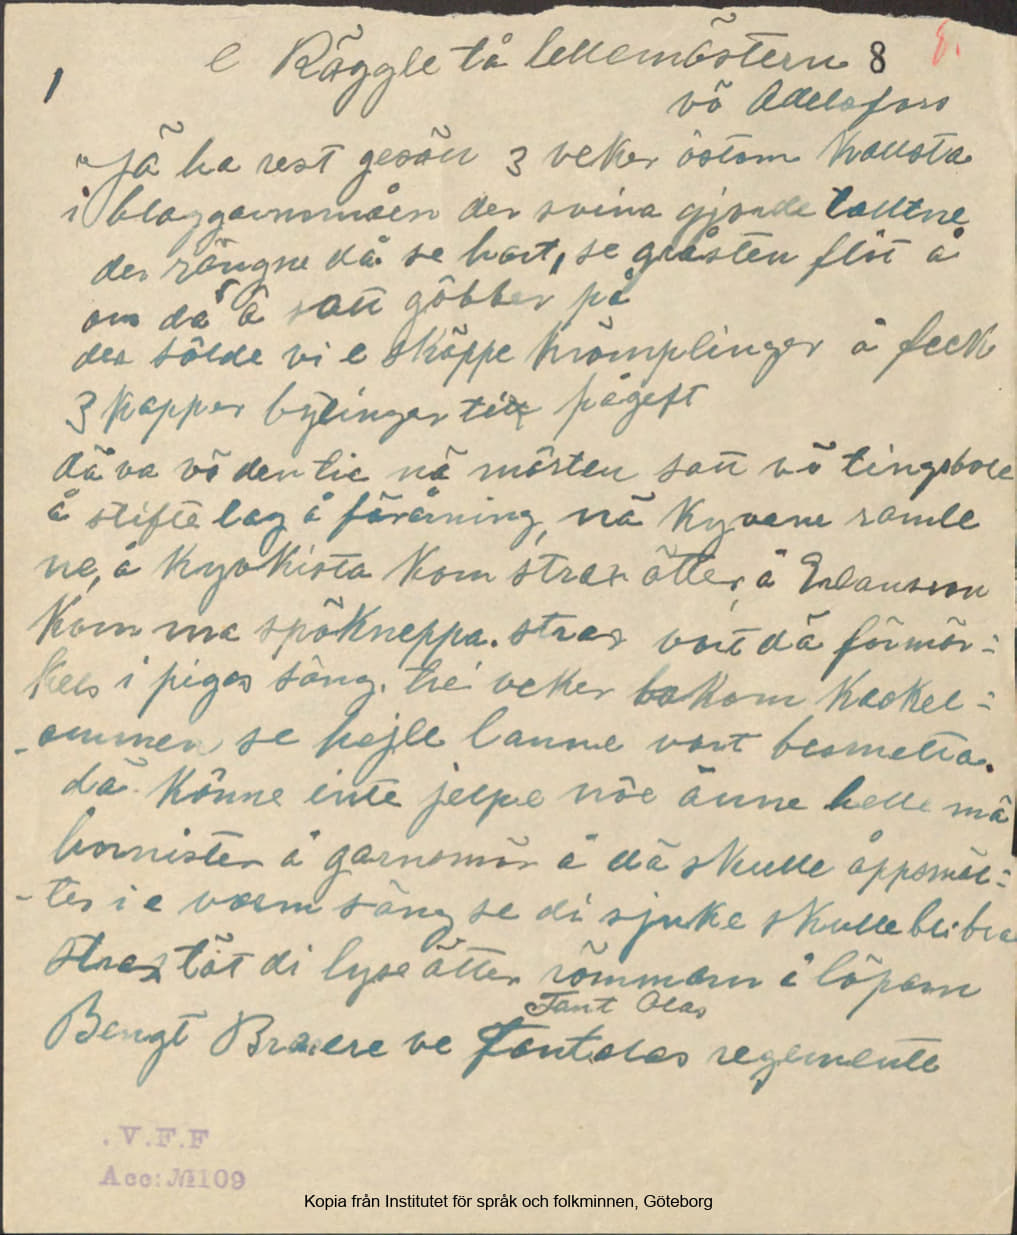 1
e Räggle tå lellemästern 8 8.
vö Adelsfors
"Jä ha rest gesäll 3 veker östom Kållsta
i blaggarnsmåen der svina gjorde talltne
der rängne då se hart, se gråsten flöt å
om då å satt göbber på
der sölde vi e skäppe krömplinger å feck
3 kapper bylinger till pågeft
dä va vö den tie nä mårten satt vö tingsbole
å stifte lag å föråning, nä Kyvene ramle
ne, å Kyrkista kom strax ätter, å Erlansson
kom ma spökneppa. strax vart dä förmör-
kels i pigas säng. tre veker bakom kackel-
-ommen se hejle lanne vart besmetta.
dä könne inte jelpe nöe änne helle mä
hornister å garnsmör å dä skulle åppsmäl-
-tes i e varm säng se di sjuke skulle bli bra
strax töt di lyse ätter römmarn å löparn
Tant Olas
Bengt Braere ve Fantolas regemente
.V.F.F
Acc: №109
Kopia från Institutet för språk och folkminnen, Göteborg